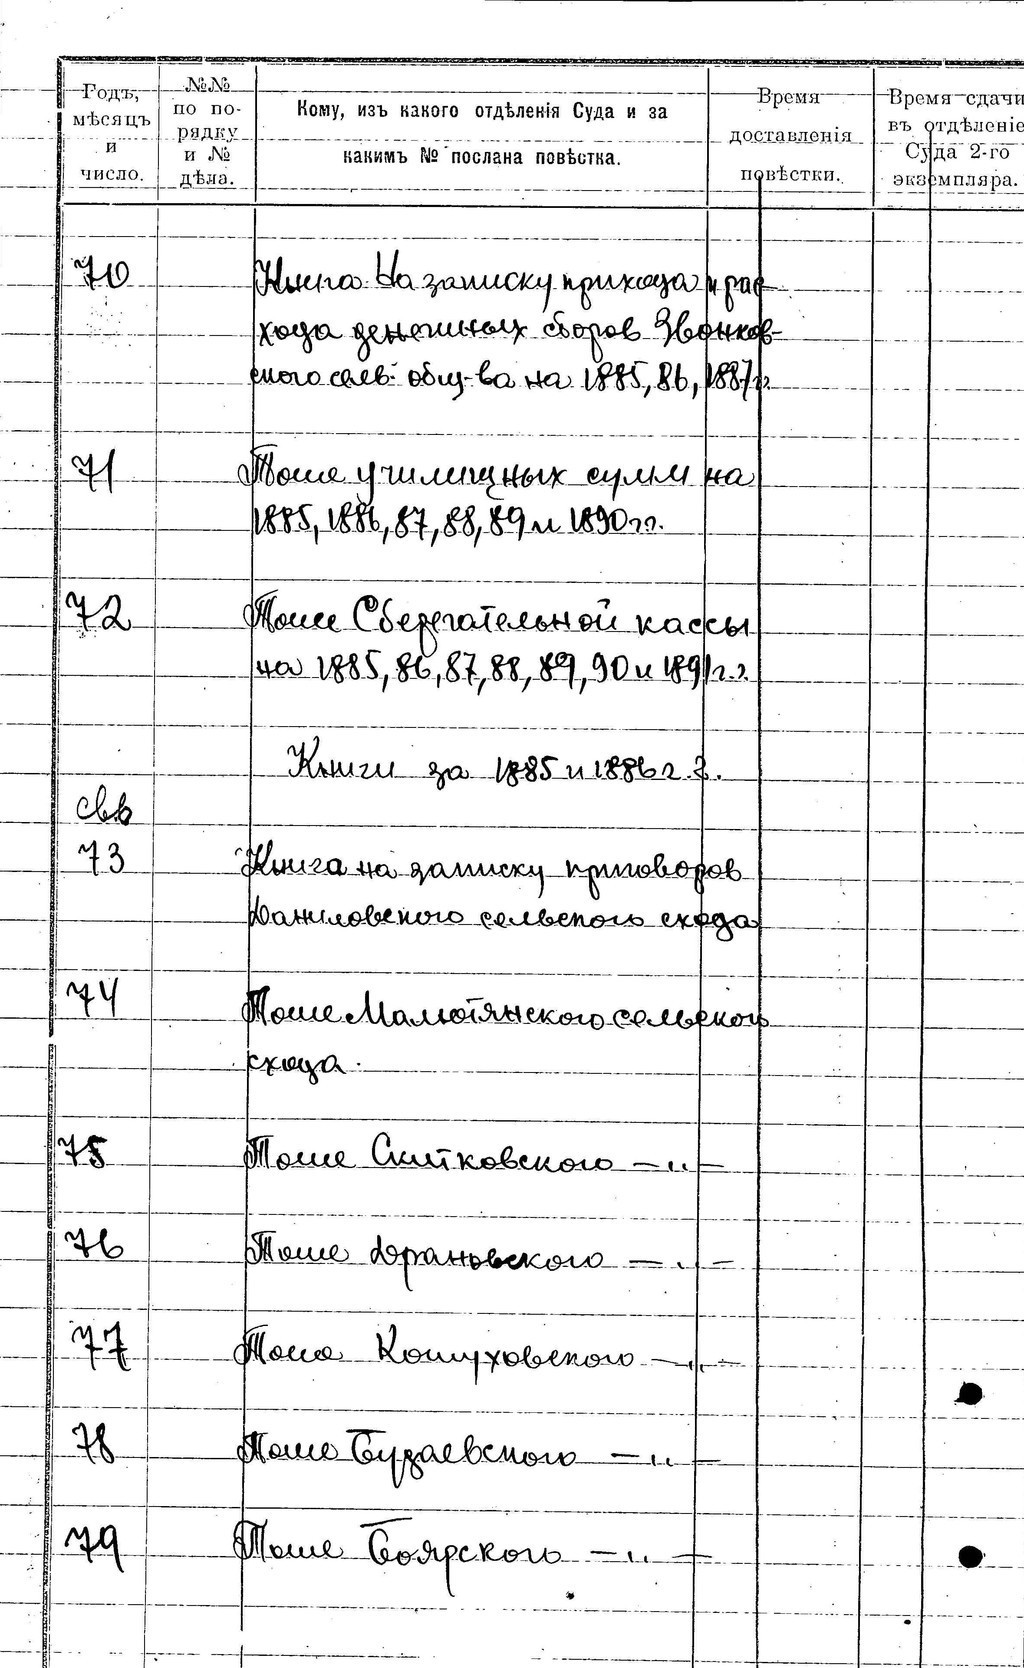 Годъ,
мѣсяцъ
и
число.
№№
по по-
рядку
и №
дѣла.
Кому, изъ какого отдѣленія Суда и за
какимъ № послана повѣстка.
Время
доставленія
повѣстки.
Время сдачи
въ отдѣленіе
Суда 2-го
экземпляра.
70 Книга На записку прихода и рас
хода денежных сборов Звонков-
ского сель. общ-ва на 1885, 86, 1887г.
71 Тоже училищных сумм на
1885, 1886, 87, 88, 89 и 1890гг.
72 Тоже Сберегательной кассы
на 1885, 86, 87, 88, 89, 90 и 1891г.г.
Книги за 1885 и 1886г.г.
73 Книга на записку приговоров
Даниловского сельского схода
74 Тоже Малютянского сельского
схода.
75 Тоже Скитковского —"—
76 Тоже Юрановского —"—
77 Тоже Кожуховского —"—
78 Тоже Бузаевского —"—
79 Тоже Боярского —"—